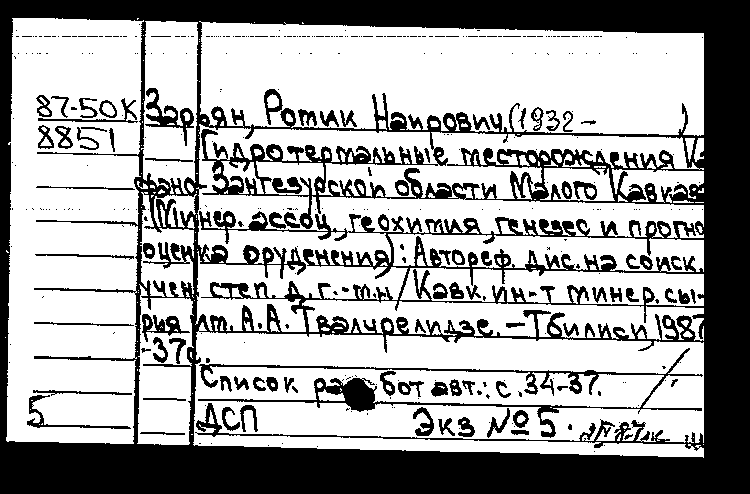 87-50К Зарьян, Ротик Наирович, (1932 - )
8851 Гидротермальные месторождения Ка
фано-Зангезурской области Малого Кавказа
: (Минер. ассоц., геохимия, генезес и прогно
оценка оруденения) : Автореф. дис. на соиск.
учен. степ. д. г.-м.н / Кавк. ин-т минер. сы-
рья им. А.А. Твалчрелидзе. — Тбилиси, 1987
-37с.
Список работ авт.: с. 34-37.
5 ДСП Экз № 5.